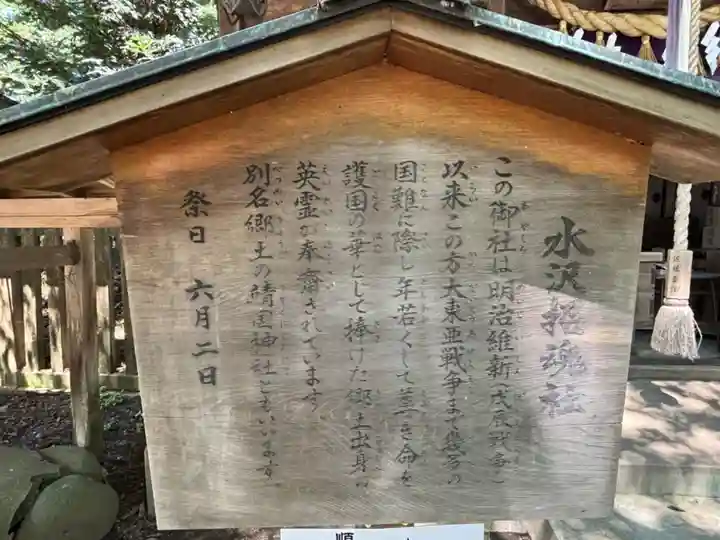 水沢招魂社
この御社は明治維新(戊辰戦争)
以来この方大東亜戦争まで幾多の
国難に際し年若くして尊き命を
護国の華として捧げた郷土出身の
英霊が奉斎されています
別名郷土の靖国神社ともいいます
祭日 六月二日
順